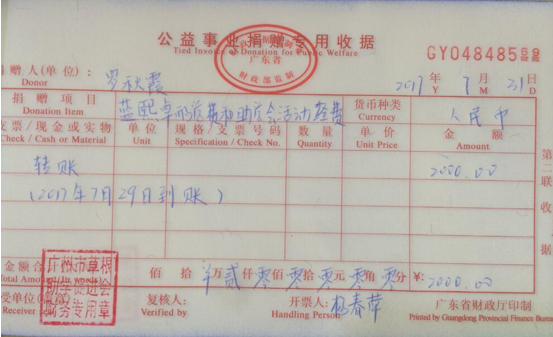 公益事业捐赠专用收据
Tied Invoice of Donation for Public Welfare
广东省
财政部监制
GY048485
捐赠人(单位): 罗秋霞
Donor
2017 年 7 月 31 日
Y M D
捐赠项目 蓝熙卓 医疗费和助 会活动经费 货币种类 人民币
Donation Item Currency
支票/现金或实物 单位 规格/支票号码 数量 单价 金额
Check / Cash or Material Unit Specification / Check No. Quantity Unit Price Amount
转账 2000.00
(2017年7月29日到账)
第二联收据
金额合 佰 拾 万 贰 仟 零 佰 零 拾 零 元 零 角 零 分 ¥: 2000.00
Total Amount (In
广州市草根
助学促进会
财务专用章
受单位 复核人: 开票人: 杨春萍 广东省财政厅印制
Receiver Verified by Handling Person Printed by Guangdong Provincial Finance Bureau